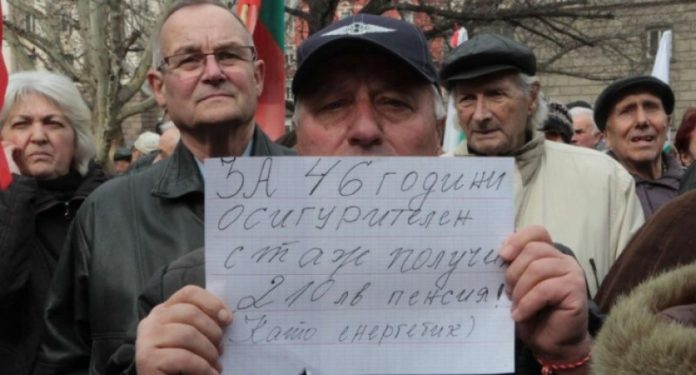 ЗА 46 години
осигурителен
стаж получих
210 лв пенсия!
(Като енергетик)